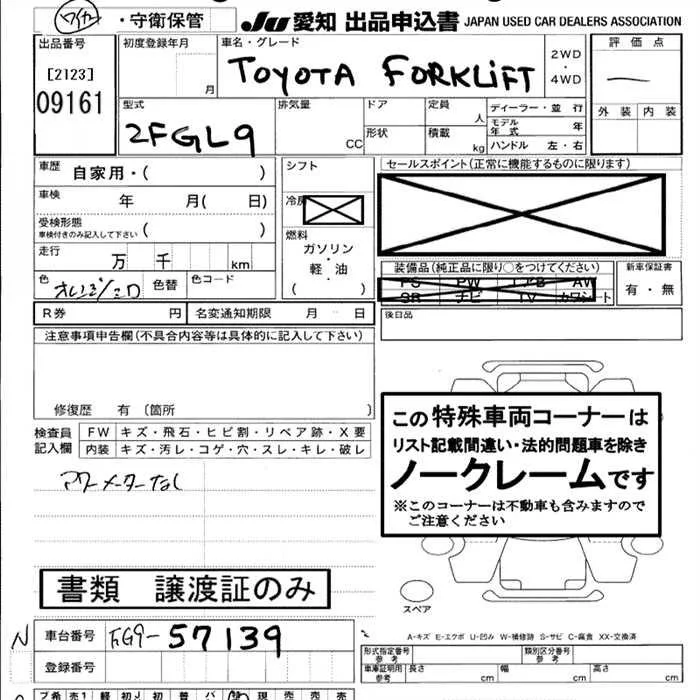 ・守衛保管 JU 愛知 出品申込書 JAPAN USED CAR DEALERS ASSOCIATION
出品番号 初度登録年月 車名・グレード 評価点
[2123] 月 TOYOTA FORKLIFT 2WD・4WD
09161 外装 内装
型式 排気量 ドア 定員 ディーラー・並行
2FGL9 CC 形状 人 モデル年式 年
積載 kg ハンドル 左・右
車歴 自家用・( ) シフト セールスポイント(正常に機能するものに限ります)
車検 年 月( 日) 冷房
受検形態 車検付きのみ記入して下さい ( ) 燃料
走行 万 千 km ガソリン・軽・油 ( )
装備品(純正品に限り○をつけてください) 新車保証書
色 色替 色コード PS PW エアB AW 有・無
SR ナビ TV カワシート
R券 円 名変通知期限 月 日 後日品
注意事項申告欄(不具合内容等は具体的に記入して下さい)
修復歴 有 〔箇所 〕
検査員記入欄 FW キズ・飛石・ヒビ割・リペア跡・X要
内装 キズ・汚レ・コゲ・穴・スレ・キレ・破レ
アワーメーターなし
この特殊車両コーナーは
リスト記載間違い・法的問題車を除き
ノークレームです
※このコーナーは不動車も含みますので
ご注意ください
書類 譲渡証のみ
スペア
N 車台番号 FG9-57139
A-キズ E-エクボ U-凹み W-補修跡 S-サビ C-腐食 XX-交換済
登録番号 形式指定番号 参考 類別区分番号 参考
車庫証明用 参考 長さ 幅 高さ